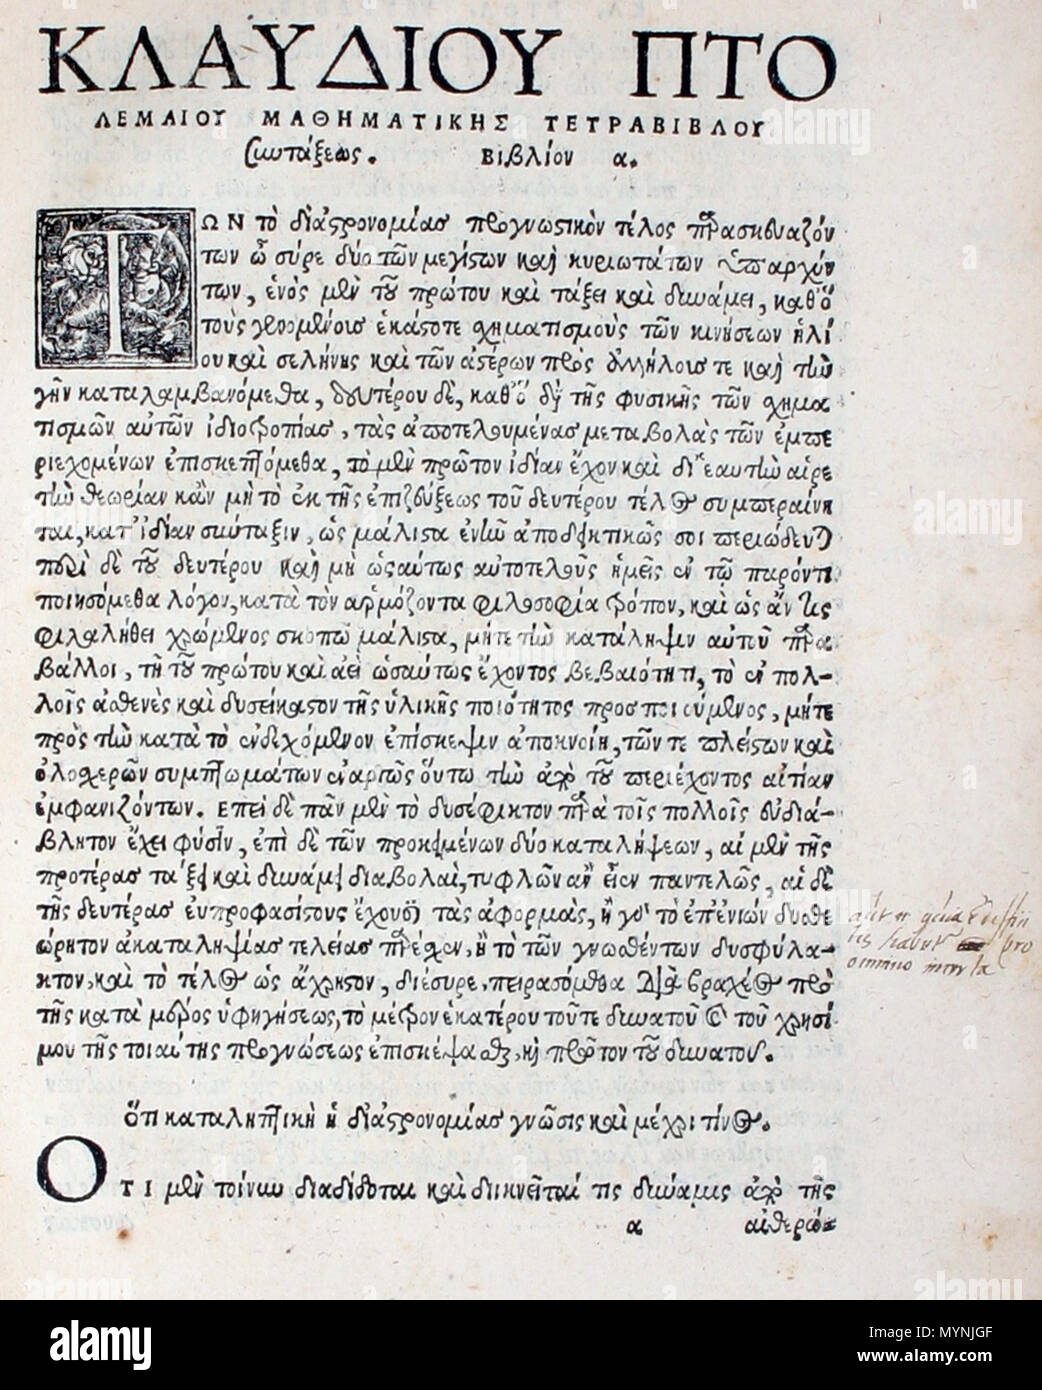 ΚΛΑΥΔΙΟΥ ΠΤΟ
ΛΕΜΑΙΟΥ ΜΑΘΗΜΑΤΙΚΗΣ ΤΕΤΡΑΒΙΒΛΟΥ
Συντάξεως. Βιβλίον α.
ΤΩΝ τὸ δι' ἀστρονομίας προγνωστικὸν τέλος παρασκευαζόν
των ὦ σύρε δύο τῶν μεγίστων καὶ κυριωτάτων ὑπαρχόν
των, ἑνὸς μὲν τοῦ πρώτου καὶ τάξει καὶ δυνάμει, καθ' ὃ
τοὺς γινομένους ἑκάστοτε σχηματισμοὺς τῶν κινήσεων ἡλί
ου καὶ σελήνης καὶ τῶν ἀστέρων πρὸς ἀλλήλους τε καὶ τὴν
γῆν καταλαμβανόμεθα, δευτέρου δὲ, καθ' ὃ δὴ τῆς φυσικῆς τῶν σχημα
τισμῶν αὐτῶν ἰδιοτροπίας, τὰς ἀποτελουμένας μεταβολὰς τῶν ἐμπε
ριεχομένων ἐπισκεπτόμεθα, τὸ μὲν πρῶτον ἰδίαν ἔχον καὶ δι' ἑαυτὴν αἱρε
τὴν θεωρίαν κἂν μὴ τὸ ἐκ τῆς ἐπιζεύξεως τοῦ δευτέρου τέλος συμπεραίνη
ται, κατ' ἰδίαν σύνταξιν, ὡς μάλιστα ἐνῆν ἀποδεικτικῶς σοι περιώδευται
περὶ δὲ τοῦ δευτέρου καὶ μὴ ὡσαύτως αὐτοτελοῦς ἡμεῖς ἐν τῷ παρόντι
ποιησόμεθα λόγον, κατὰ τὸν ἁρμόζοντα φιλοσοφία τρόπον, καὶ ὡς ἄν τις
φιλαλήθει χρώμενος σκοπῷ μάλιστα, μήτε τὴν κατάληψιν αὐτοῦ παρα
βάλλοι, τῇ τοῦ πρώτου καὶ ἀεὶ ὡσαύτως ἔχοντος βεβαιότητι, τὸ ἐν πολ-
λοῖς ἀσθενὲς καὶ δυσείκαστον τῆς ὑλικῆς ποιότητος προσποιούμενος, μήτε
πρὸς τὴν κατὰ τὸ ἐνδεχόμενον ἐπίσκεψιν ἀποκνοίη, τῶν τε πλείστων καὶ
ὁλοχερῶν συμπτωμάτων ἐναργῶς οὕτω τὴν ἀπὸ τοῦ περιέχοντος αἰτίαν
ἐμφανιζόντων. Επεὶ δὲ πᾶν μὲν τὸ δυσέφικτον παρὰ τοῖς πολλοῖς εὐδιά-
βλητον ἔχει φύσιν, ἐπὶ δὲ τῶν προκειμένων δύο καταλήψεων, αἱ μὲν τῆς
προτέρας τάξει καὶ δυνάμει διαβολαὶ, τυφλῶν ἂν εἶεν παντελῶς, αἱ δὲ
τῆς δευτέρας εὐπροφασίστους ἔχουσι τὰς ἀφορμὰς, ἢ γὰρ τὸ ἐπ' ἐνίων δυσθε
ώρητον ἀκαταληψίας τελείας παρέσχεν, ἢ τὸ τῶν γνωσθέντων δυσφύλα-
κτον, καὶ τὸ τέλος ὡς ἄχρηστον, διέσυρε, πειρασόμεθα διὰ βραχέος πρὸ
τῆς κατὰ μέρος ὑφηγήσεως, τὸ μέτρον ἑκατέρου τοῦτε δυνατοῦ καὶ τοῦ χρησί
μου τῆς τοιαύτης προγνώσεως ἐπισκέψασθαι, καὶ πρῶτον τοῦ δυνατοῦ.
Ὅτι καταληπτικὴ ἡ δι' ἀστρονομίας γνῶσις καὶ μέχρι τίνος.
ΟΤΙ μὲν τοίνυν διαδίδοται καὶ διικνεῖται τις δύναμις ἀπὸ τῆς
α αἰθερώ=
omnino
alamy
Image ID: MYNJGF
www.alamy.com